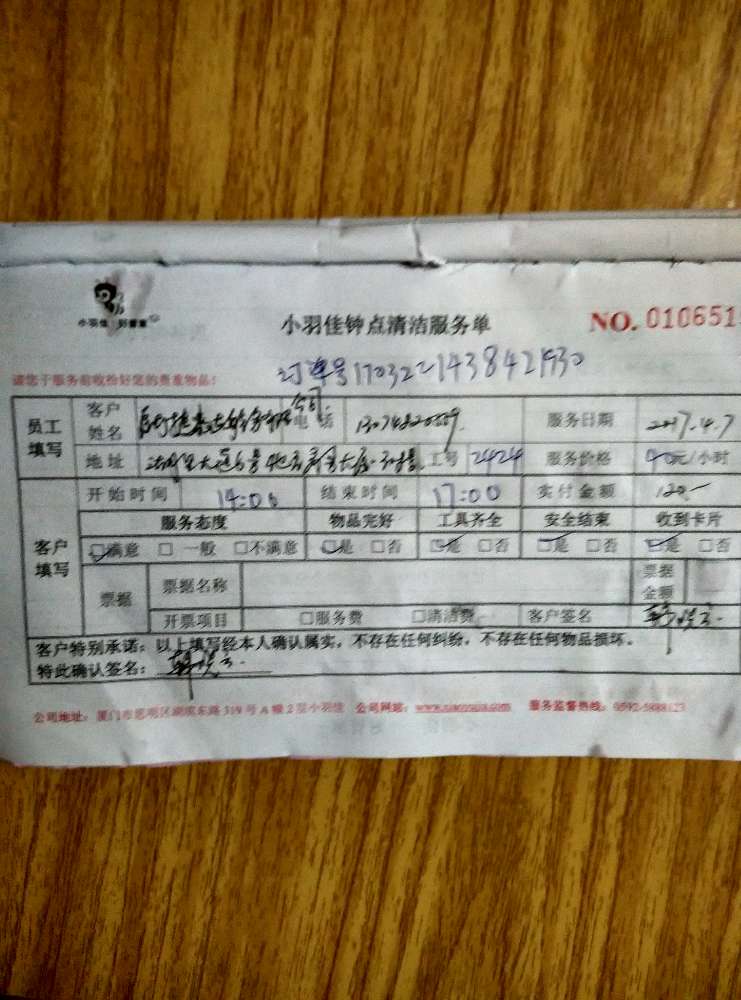 小羽佳
小羽佳钟点清洁服务单
NO. 010651
订单号170322143842930
请您于服务前收拾好您的贵重物品！
员工填写 客户姓名 公司 电话 服务日期 2017.4.7
地址 工号 2424 服务价格 40元/小时
客户填写 开始时间 14:00 结束时间 17:00 实付金额 120.-
服务态度 物品完好 工具齐全 安全结束 收到卡片
☑满意 □一般 □不满意 ☑是 □否 ☑是 □否 ☑是 □否 ☑是 □否
票据 票据名称 票据金额
开票项目 □服务费 □清洁费 客户签名
客户特别承诺：以上填写经本人确认属实，不存在任何纠纷，不存在任何物品损坏。
特此确认签名：
公司地址：厦门市思明区湖滨东路319号A幢2层小羽佳 公司网站： 服务监督热线：0592-5888123